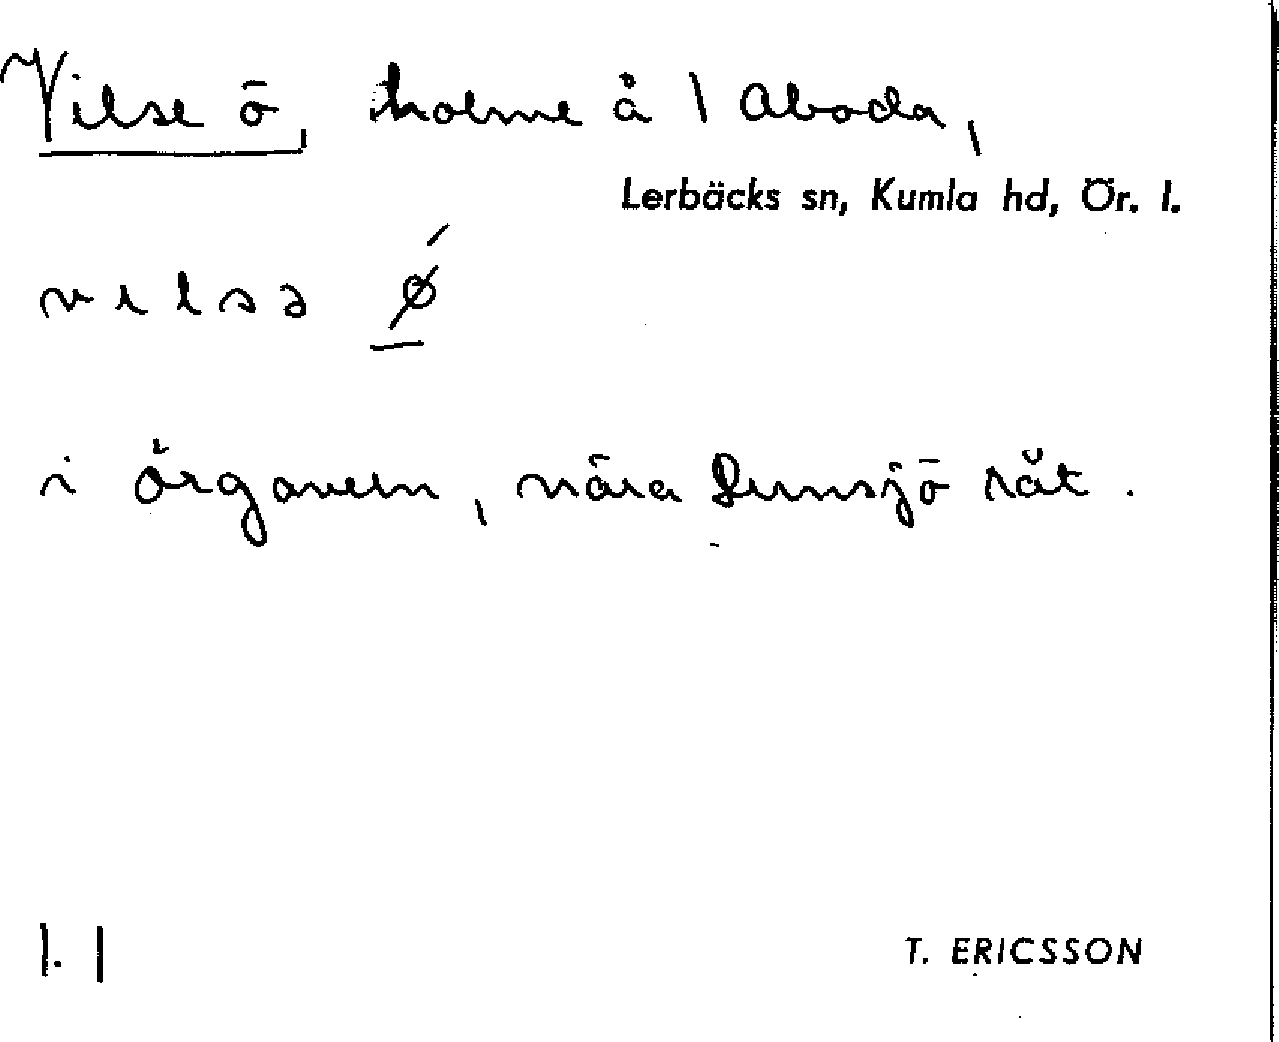 Vilse ö, holme å \ Aboda,
Lerbäcks sn, Kumla hd, Ör. l.
vılsə ø´
i örganeln, nära Sunsjö råt.
1. |
T. ERICSSON